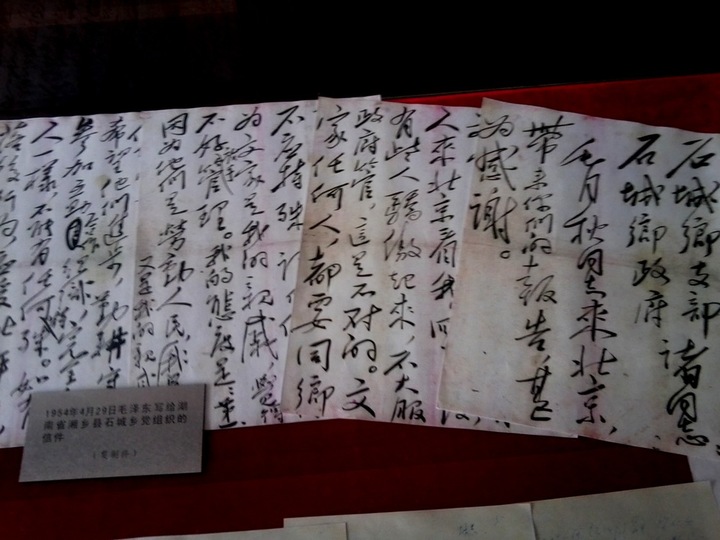 石城鄉支部
石城鄉政府
諸同志
毛月秋同志來北京，
帶來你們的報告，甚
为感謝。
人來北京看我回
有些人驕傲起來，不大服
政府管，這是不对的。文
家任何人，都要同鄉
不應特殊
为文家是我的親戚，覺得
不好管理。我的態度是
因为他們是勞動人民，
又是我的親戚
希望他們進步，勤耕守
參加互助合作組織，完全
人一樣，不能有任何特殊。如
落後行为，應受批評
1954年4月29日毛泽东写给湖
南省湘乡县石城乡党组织的
信件
（复制件）